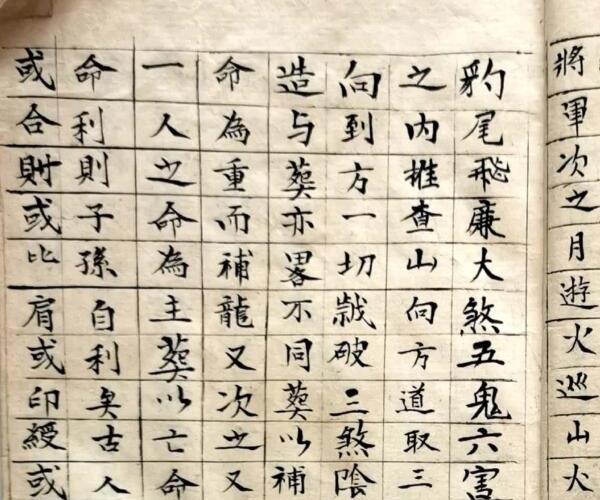 將軍次之月遊火巡山火
豹尾飛廉大煞五鬼六害
之內推查山向方道取三
向到方一切戠破三煞陰
造与葬亦畧不同葬以補
命為重而補龍又次之又
一人之命為主葬以亡命
命利則子孫自利矣古人
或合財或比肩或印綬或